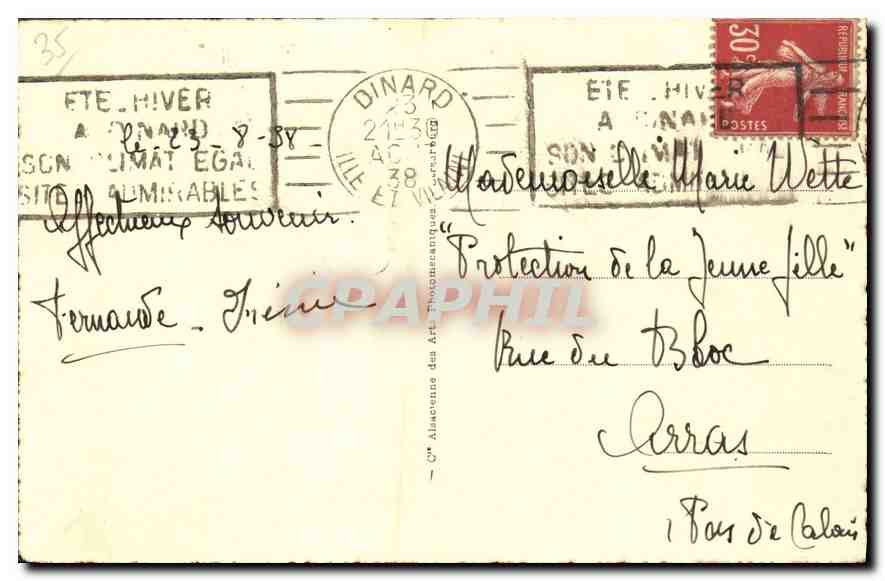 35
ETE_HIVER
A DINARD
SON CLIMAT EGAL
SITES ADMIRABLES
DINARD
23
21H3
AO
38
ILLE ET VILAINE
ETE_HIVER
A DINARD
SON CLIMAT
SITES ADMIRABLES
30c
REPUBLIQUE FRANÇAISE
POSTES
le 23-8-38-
Affectueux souvenir.
Fernande - Irénée
Cie Alsacienne des Arts Photomécaniques, Strasbourg
Mademoiselle Marie Wette
"Protection de la Jeune fille"
Rue du Bloc
Arras
Pas de Calais
CPAPHIL